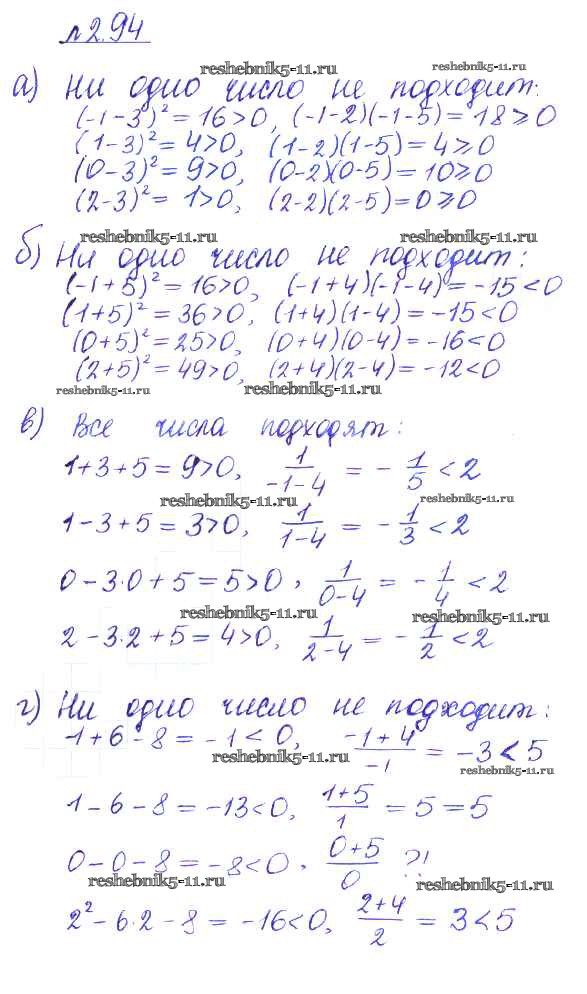 №2.94
reshebnik5-11.ru reshebnik5-11.ru
а) Ни одно число не подходит:
(-1-3)² = 16>0, (-1-2)(-1-5) = 18⩾0
(1-3)² = 4>0, (1-2)(1-5) = 4⩾0
(0-3)² = 9>0, (0-2)(0-5) = 10⩾0
(2-3)² = 1>0, (2-2)(2-5) = 0⩾0
reshebnik5-11.ru reshebnik5-11.ru
б) Ни одно число не подходит:
(-1+5)² = 16>0, (-1+4)(-1-4) = -15<0
(1+5)² = 36>0, (1+4)(1-4) = -15<0
(0+5)² = 25>0, (0+4)(0-4) = -16<0
(2+5)² = 49>0, (2+4)(2-4) = -12<0
reshebnik5-11.ru reshebnik5-11.ru
в) Все числа подходят:
1+3+5 = 9>0, 1/(-1-4) = -1/5 <2
reshebnik5-11.ru reshebnik5-11.ru
1-3+5 = 3>0, 1/(1-4) = -1/3 <2
0-3·0+5 = 5>0, 1/(0-4) = -1/4 <2
reshebnik5-11.ru reshebnik5-11.ru
2-3·2+5 = 4>0, 1/(2-4) = -1/2 <2
г) Ни одно число не подходит:
-1+6-8 = -1<0, (-1+4)/(-1) = -3<5
reshebnik5-11.ru reshebnik5-11.ru
1-6-8 = -13<0, (1+5)/1 = 5=5
0-0-8 = -8<0, (0+5)/0 ?!
reshebnik5-11.ru reshebnik5-11.ru
2²-6·2-8 = -16<0, (2+4)/2 = 3<5